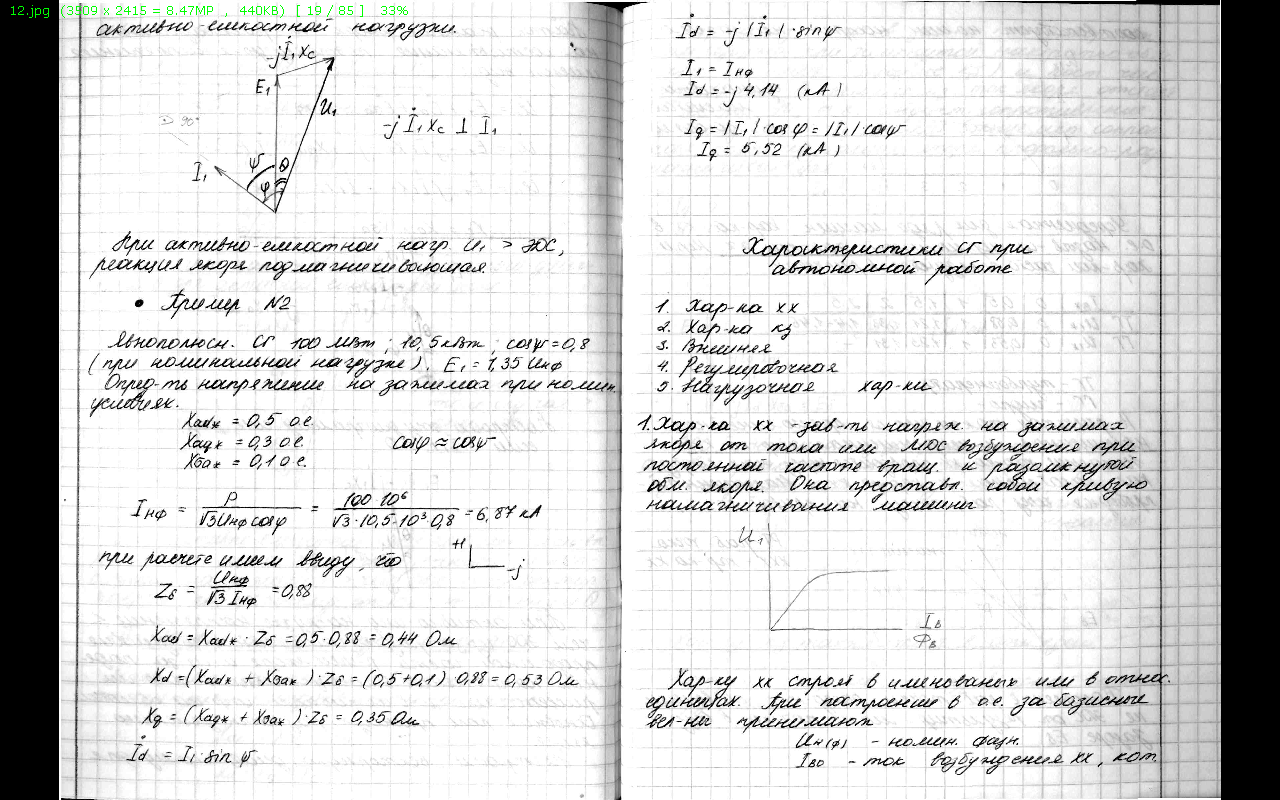 12.jpg (3509 x 2415 = 8.47MP , 440KB) [ 19 / 85 ] 33%
активно-емкостной нагрузки.
-jİ₁xc
E₁
U₁
90°
-jİ₁xc ⊥ İ₁
İ₁
ψ
θ
φ
При активно-емкостной нагр. U₁ > ЭДС,
реакция якоря подмагничивающая.
• Пример N2
Явнополюсн. СГ 100 мВт; 10,5 кВт; cosψ=0,8
(при номинальной нагрузке). E₁ = 1,35 Uнф
Опред-ть напряжение на зажимах при номин.
условиях.
Xad* = 0,5 о.е.
Xaq* = 0,3 о.е.
cosφ ≈ cosψ
Xσа* = 0,1 о.е.
Iнф = P / √3Uнф cosφ = 100·10⁶ / √3·10,5·10³·0,8 = 6,87 кА
при расчете имеем ввиду, что
+1
-j
Zδ = Uнф / √3 Iнф = 0,88
Xad = Xad* · Zδ = 0,5·0,88 = 0,44 Ом
Xd = (Xad* + Xσа*)·Zδ = (0,5+0,1)·0,88 = 0,53 Ом
Xq = (Xaq* + Xσа*)·Zδ = 0,35 Ом
İd = I₁·sin ψ
İd = -j |İ₁|·sin ψ
I₁ = Iнф
Id = -j 4,14 (кА)
Iq = |I₁|·cos φ = |I₁|·cosψ
Iq = 5,52 (кА)
Характеристики СГ при
автономной работе
1. Хар-ка хх
2. Хар-ка кз
3. Внешняя
4. Регулировочная
5. Нагрузочная хар-ки
1. Хар-ка хх - зав-ть напряж. на зажимах
якоря от тока или МДС возбуждения при
постоянной частоте вращ. и разомкнутой
обм. якоря. Она представл. собой кривую
намагничивания машины
U₁
Iв
Фв
Хар-ку хх строят в именованых или в относ.
единицах. При построение в о.е. за базисные
вел-ны принимают
Uн(ф) - номин. фазн.
Iво - ток возбуждения хх, кот.